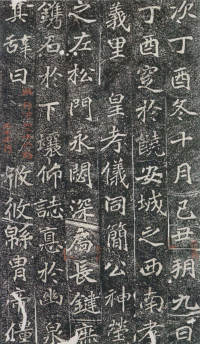 次丁酉冬十月己丑朔九日
丁酉窆於饒安城之西南孝
義里 皇考儀同簡公神塋
之左松門永閟深扃長鍵庶
鐫石於下壤仰誌悳於幽泉
其辭曰 攸攸緜胄帝